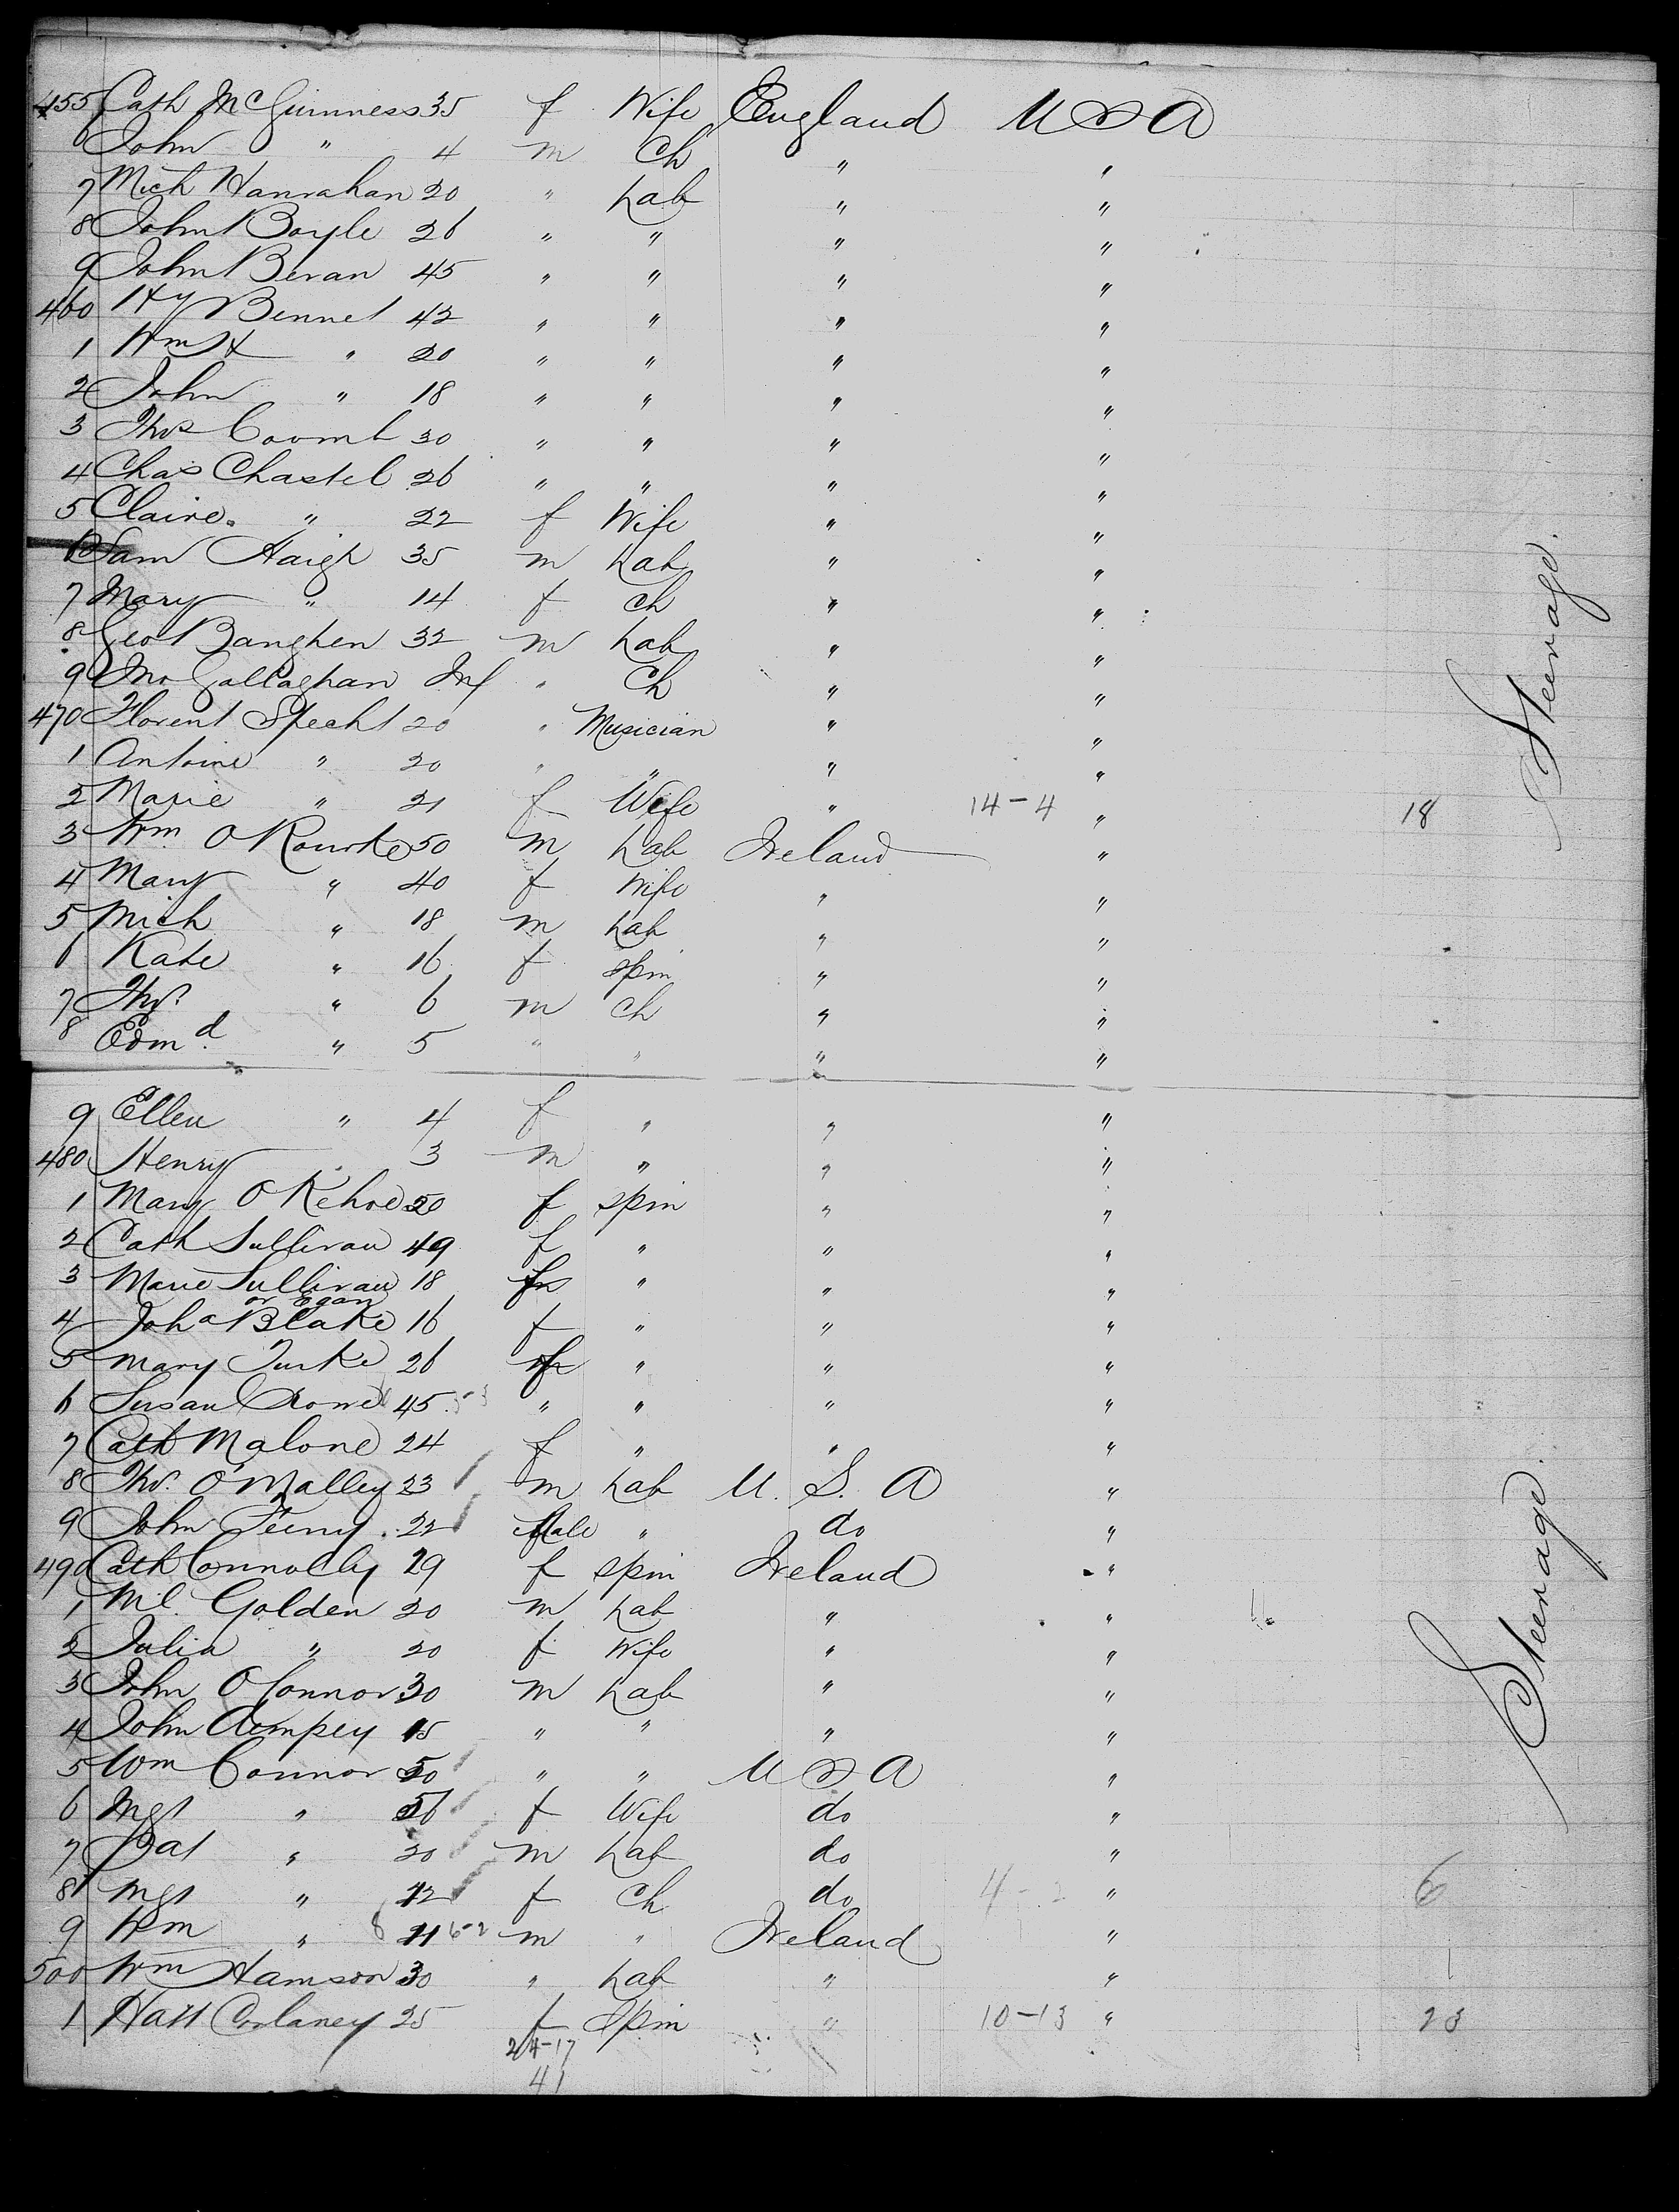 455 Cath McGuinness 35 f Wife England U S A
John " 4 m Ch " "
7 Mich Hanrahan 20 " Lab " "
8 John Boyle 26 " " " "
9 John Bevan 45 " " " "
460 Hy Bennet 42 " " " "
1 Wm H " 20 " " " "
2 John " 18 " " " "
3 Thos Coomb 30 " " " "
4 Chas Chastel 26 " " " "
5 Claire " 22 f Wife " "
6 Sam Haigh 35 m Lab " "
7 Mary " 14 f Ch " "
8 Geo Banghen 32 m Lab " "
9 Jno Gallaghan Inf " Ch " "
470 Florent Specht 20 " Musician " "
1 Antoine " 20 " " " "
2 Marie " 21 f Wife " 14-4 " 18
3 Wm O Rourke 50 m Lab Ireland "
4 Mary " 40 f Wife " "
5 Mich " 18 m Lab " "
6 Kate " 16 f Spin " "
7 Thos " 6 m Ch " "
8 Edmd " 5 " " " "
Steerage.
9 Ellen " 4 f " " "
480 Henry " 3 m " " "
1 Mary O Kehoe 20 f Spin " "
2 Cath Sullivan 49 f " " "
3 Marie Sullivan 18 f " " "
or Egan
4 Joha Blake 16 f " " "
5 Mary Turke 26 f " " "
6 Susan Crowe 45 " " " "
7 Cath Malone 24 f " " "
8 Thos. O'Malley 23 m Lab U. S. A "
9 John Feeny 22 Male " do "
490 Cath Connolly 29 f Spin Ireland "
1 Ml. Golden 20 m Lab " "
2 Julia " 20 f Wife " "
3 John O Connor 30 m Lab " "
4 John Dempsey 15 " " " "
5 Wm Connor 50 " " U S A "
6 Mgt " 56 f Wife do "
7 Pat " 20 m Lab do "
8 Mgt " 12 f Ch do 4-2 " 6
9 Wm " 8 11 6-2 m " Ireland "
500 Wm Hamson 30 " Lab " " 1
1 Hatt 25 f Spin " 10-13 " 23
24-17
41
Steerage.